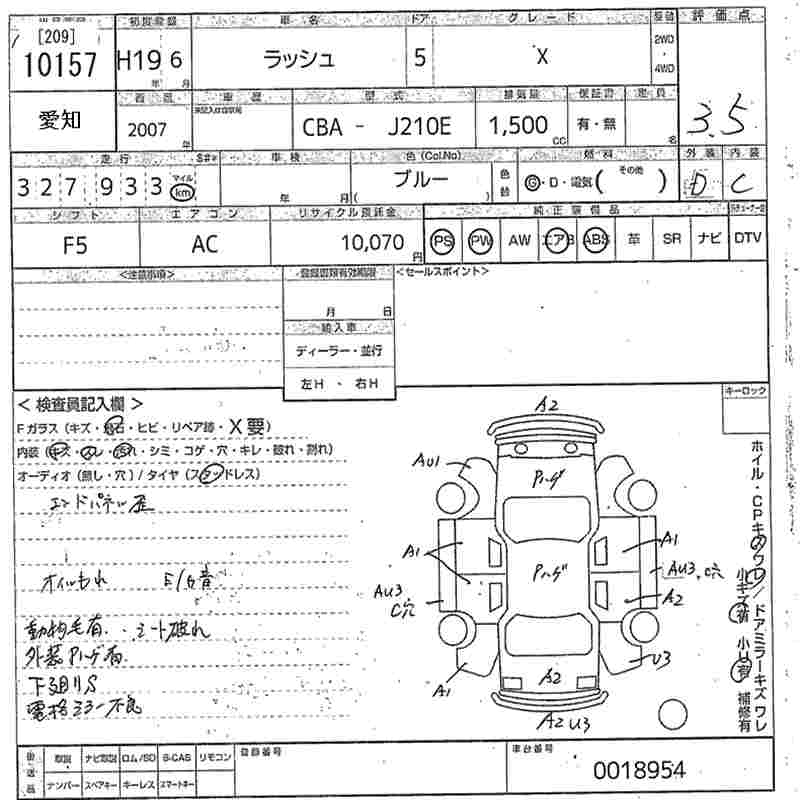 [209]
10157
初度登録
H19 6
年 月
車名
ラッシュ
ドア
5
グレード
X
2WD
4WD
評価点
3.5
愛知
2007
年
車歴
型式
CBA - J210E
排気量
1,500
cc
保証書
有・無
定員
名
走行
327,933
マイル
km
車検
年 月
色(Col.No)
ブルー
( )
色替
燃料
G・D・電気( その他 )
外装
D
内装
C
シフト
F5
エアコン
AC
リサイクル預託金
10,070
円
純正装備品
PS PW AW エアB ABS 革 SR ナビ DTV
<注意事項>
登録書類有効期限
月 日
輸入車
ディーラー・並行
左H ・ 右H
<セールスポイント>
キーロック
< 検査員記入欄 >
Fガラス (キズ・飛石・ヒビ・リペア跡・X要)
内装 (キズ・スレ・汚れ・シミ・コゲ・穴・キレ・破れ・割れ)
オーディオ (無し・穴) / タイヤ (スタッドレス)
エンドパネル歪
オイルもれ E/G音
動物毛有. シート破れ
外装Pハゲ有
下廻りS
電格ミラー不良
A2
AU1
Pハゲ
A1
A1
AU3
C穴
Pハゲ
AU3, C穴
A2
A1
A2
U3
A2 U3
ホイル・CPキズワレ/ドアミラーキズワレ
小キズ有 小U有 補修有
後送品
取説 ナビ取説 ロム/SD B-CAS リモコン
ナンバー スペアキー キーレス スマートキー
登録番号
車台番号
0018954